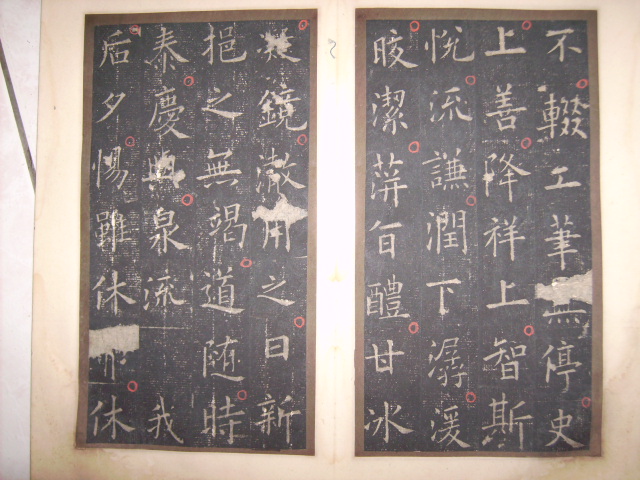 不輟工筆無停史
上善降祥上智斯
悅流謙潤下潺湲
晈潔蓱旨醴甘冰
凝鏡澈用之日新
挹之無竭道随時
泰慶與泉流我
后夕惕雖休弗休